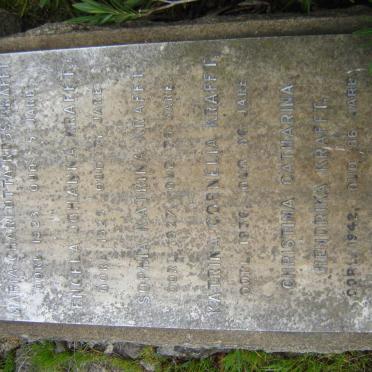 MARIA KRAFFT
OORL. OUD JARE
ENGELA JOHANNA KRAFFT,
OORL. 1929, OUD JARE
SOPHIA KATRINA KRAFFT,
OORL. 1927, OUD JARE
KATRINA CORNELIA KRAFFT,
OORL. OUD JARE
CHRISTINA CATHARINA
HENDRIKA KRAFFT,
OORL. 1942, OUD 86 JARE.